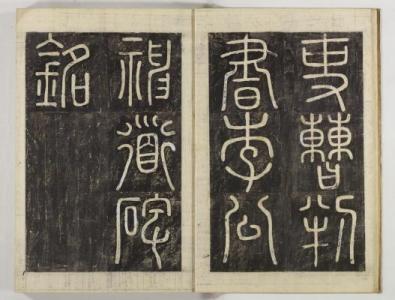 吏曹判
書李公
神道碑
銘